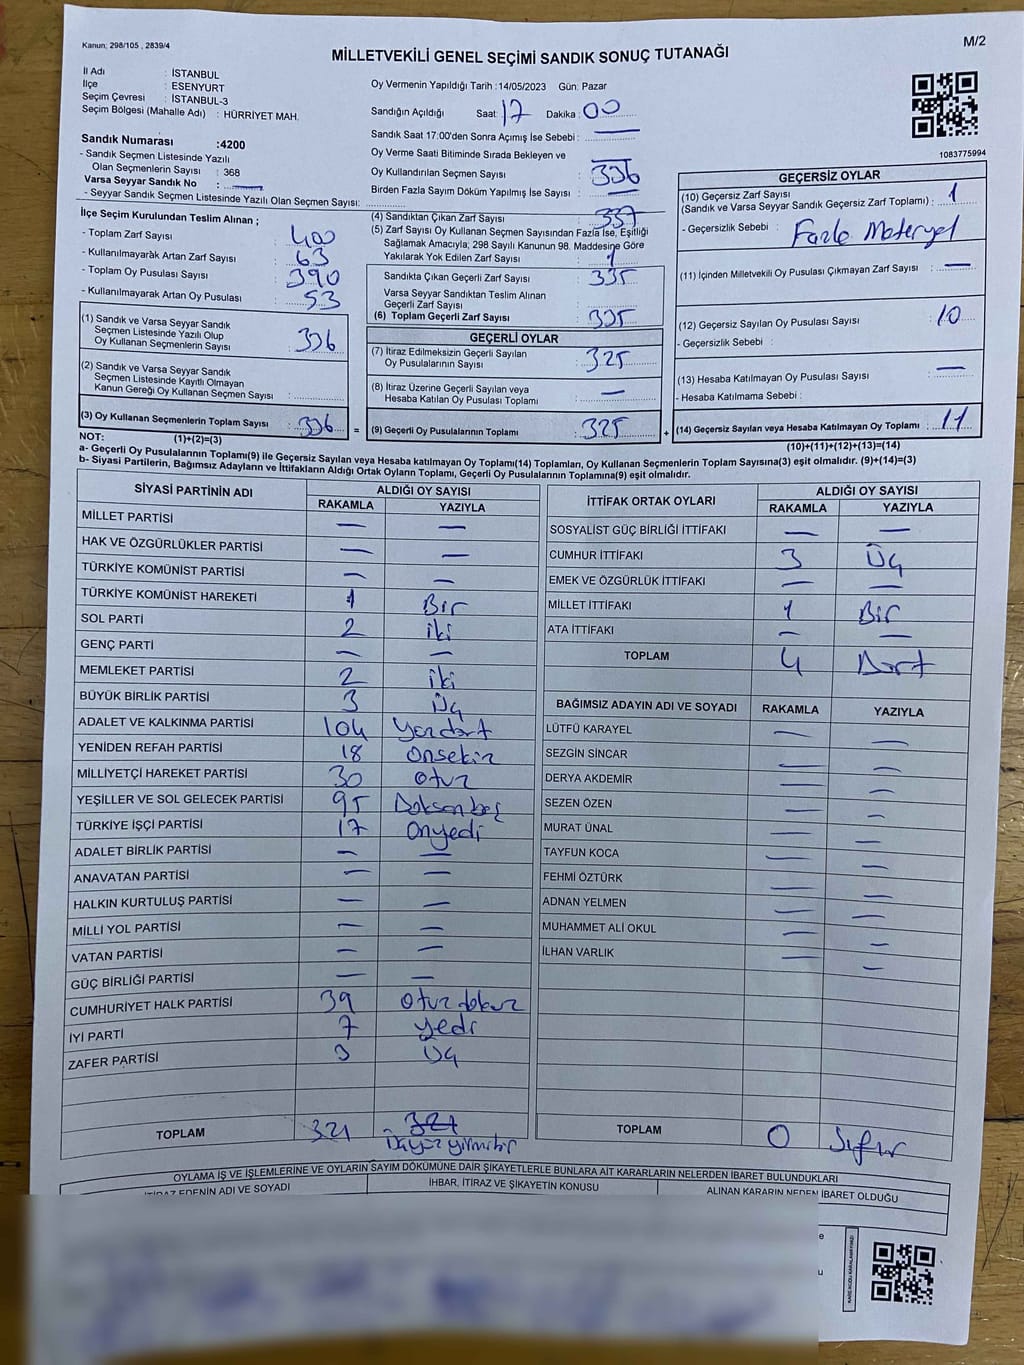 Kanun; 298/105 , 2839/4
M/2
MİLLETVEKİLİ GENEL SEÇİMİ SANDIK SONUÇ TUTANAĞI
İl Adı : İSTANBUL
İlçe : ESENYURT
Seçim Çevresi : İSTANBUL-3
Seçim Bölgesi (Mahalle Adı) : HÜRRİYET MAH.
Sandık Numarası :4200
- Sandık Seçmen Listesinde Yazılı
Olan Seçmenlerin Sayısı : 368
Varsa Seyyar Sandık No : —
- Seyyar Sandık Seçmen Listesinde Yazılı Olan Seçmen Sayısı:
Oy Vermenin Yapıldığı Tarih :14/05/2023 Gün: Pazar
Sandığın Açıldığı Saat: 17 Dakika : 00
Sandık Saat 17:00'den Sonra Açımış İse Sebebi : —
Oy Verme Saati Bitiminde Sırada Bekleyen ve
Oy Kullandırılan Seçmen Sayısı : 336
Birden Fazla Sayım Döküm Yapılmış İse Sayısı : —
1083775994
İlçe Seçim Kurulundan Teslim Alınan ;
- Toplam Zarf Sayısı : 400
- Kullanılmayarak Artan Zarf Sayısı : 63
- Toplam Oy Pusulası Sayısı : 390
- Kullanılmayarak Artan Oy Pusulası : 53
(1) Sandık ve Varsa Seyyar Sandık
Seçmen Listesinde Yazılı Olup
Oy Kullanan Seçmenlerin Sayısı : 336
(2) Sandık ve Varsa Seyyar Sandık
Seçmen Listesinde Kayıtlı Olmayan
Kanun Gereği Oy Kullanan Seçmen Sayısı :
(3) Oy Kullanan Seçmenlerin Toplam Sayısı : 336 =
(1)+(2)=(3)
(4) Sandıktan Çıkan Zarf Sayısı : 337
(5) Zarf Sayısı Oy Kullanan Seçmen Sayısından Fazla İse, Eşitliği
Sağlamak Amacıyla; 298 Sayılı Kanunun 98. Maddesine Göre
Yakılarak Yok Edilen Zarf Sayısı : 1
Sandıkta Çıkan Geçerli Zarf Sayısı : 335
Varsa Seyyar Sandıktan Teslim Alınan
Geçerli Zarf Sayısı :
(6) Toplam Geçerli Zarf Sayısı : 335
GEÇERLİ OYLAR
(7) İtiraz Edilmeksizin Geçerli Sayılan
Oy Pusulalarının Sayısı : 325
(8) İtiraz Üzerine Geçerli Sayılan veya
Hesaba Katılan Oy Pusulası Toplamı : —
(9) Geçerli Oy Pusulalarının Toplamı : 325 +
GEÇERSİZ OYLAR
(10) Geçersiz Zarf Sayısı
(Sandık ve Varsa Seyyar Sandık Geçersiz Zarf Toplamı) : 1
- Geçersizlik Sebebi : Fazla Materyel
(11) İçinden Milletvekili Oy Pusulası Çıkmayan Zarf Sayısı : —
(12) Geçersiz Sayılan Oy Pusulası Sayısı : 10
- Geçersizlik Sebebi :
(13) Hesaba Katılmayan Oy Pusulası Sayısı : —
- Hesaba Katılmama Sebebi :
(14) Geçersiz Sayılan veya Hesaba Katılmayan Oy Toplamı : 11
(10)+(11)+(12)+(13)=(14)
NOT:
a- Geçerli Oy Pusulalarının Toplamı(9) ile Geçersiz Sayılan veya Hesaba katılmayan Oy Toplamı(14) Toplamları, Oy Kullanan Seçmenlerin Toplam Sayısına(3) eşit olmalıdır. (9)+(14)=(3)
b- Siyasi Partilerin, Bağımsız Adayların ve İttifakların Aldığı Ortak Oyların Toplamı, Geçerli Oy Pusulalarının Toplamına(9) eşit olmalıdır.
SİYASİ PARTİNİN ADI ALDIĞI OY SAYISI
RAKAMLA YAZIYLA
MİLLET PARTİSİ — —
HAK VE ÖZGÜRLÜKLER PARTİSİ — —
TÜRKİYE KOMÜNİST PARTİSİ — —
TÜRKİYE KOMÜNİST HAREKETİ 1 Bir
SOL PARTİ 2 iki
GENÇ PARTİ — —
MEMLEKET PARTİSİ 2 iki
BÜYÜK BİRLİK PARTİSİ 3 Üç
ADALET VE KALKINMA PARTİSİ 104 Yüzdört
YENİDEN REFAH PARTİSİ 18 Onsekiz
MİLLİYETÇİ HAREKET PARTİSİ 30 otuz
YEŞİLLER VE SOL GELECEK PARTİSİ 95 Doksan beş
TÜRKİYE İŞÇİ PARTİSİ 17 Onyedi
ADALET BİRLİK PARTİSİ — —
ANAVATAN PARTİSİ — —
HALKIN KURTULUŞ PARTİSİ — —
MİLLİ YOL PARTİSİ — —
VATAN PARTİSİ — —
GÜÇ BİRLİĞİ PARTİSİ — —
CUMHURİYET HALK PARTİSİ 39 otuz dokuz
İYİ PARTİ 7 yedi
ZAFER PARTİSİ 3 Üç
TOPLAM 321 321
Üçyüz yirmibir
İTTİFAK ORTAK OYLARI ALDIĞI OY SAYISI
RAKAMLA YAZIYLA
SOSYALİST GÜÇ BİRLİĞİ İTTİFAKI — —
CUMHUR İTTİFAKI 3 Üç
EMEK VE ÖZGÜRLÜK İTTİFAKI — —
MİLLET İTTİFAKI 1 Bir
ATA İTTİFAKI — —
TOPLAM 4 Dört
BAĞIMSIZ ADAYIN ADI VE SOYADI RAKAMLA YAZIYLA
LÜTFÜ KARAYEL — —
SEZGİN SİNCAR — —
DERYA AKDEMİR — —
SEZEN ÖZEN — —
MURAT ÜNAL — —
TAYFUN KOCA — —
FEHMİ ÖZTÜRK — —
ADNAN YELMEN — —
MUHAMMET ALİ OKUL — —
İLHAN VARLIK — —
TOPLAM 0 Sıfır
OYLAMA İŞ VE İŞLEMLERİNE VE OYLARIN SAYIM DÖKÜMÜNE DAİR ŞİKAYETLERLE BUNLARA AİT KARARLARIN NELERDEN İBARET BULUNDUKLARI
İTİRAZ EDENİN ADI VE SOYADI İHBAR, İTİRAZ VE ŞİKAYETİN KONUSU ALINAN KARARIN NEDEN İBARET OLDUĞU